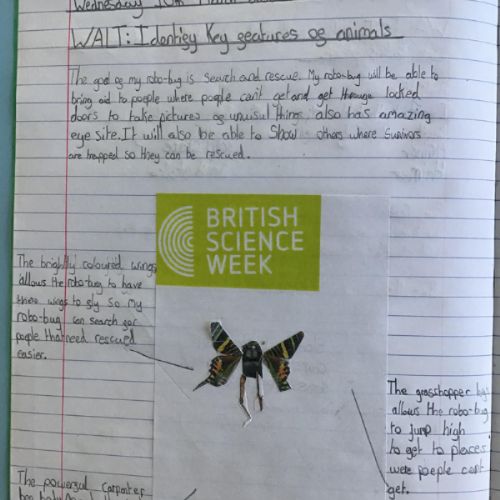 Wednesday 10th March
WALT: Identify Key features of animals
The goal of my robo-bug is search and rescue. My robo-bug will be able to
bring aid to poeple where poeple can't get and get through locked
doors to take pictures of unusul things. also has amazing
eye site. It will also be able to Show others where Survivors
are trapped so they can be rescued.
BRITISH
SCIENCE
WEEK
The brightly coloured wings
allows the robo-bug to have
these wings to fly so my
robo-bug can search for
pople that need rescued
easier.
The grasshopper legs
allows the robo-bug
to jump high
to get to pleaces
were poeple cant
get.
The powerful carpenter